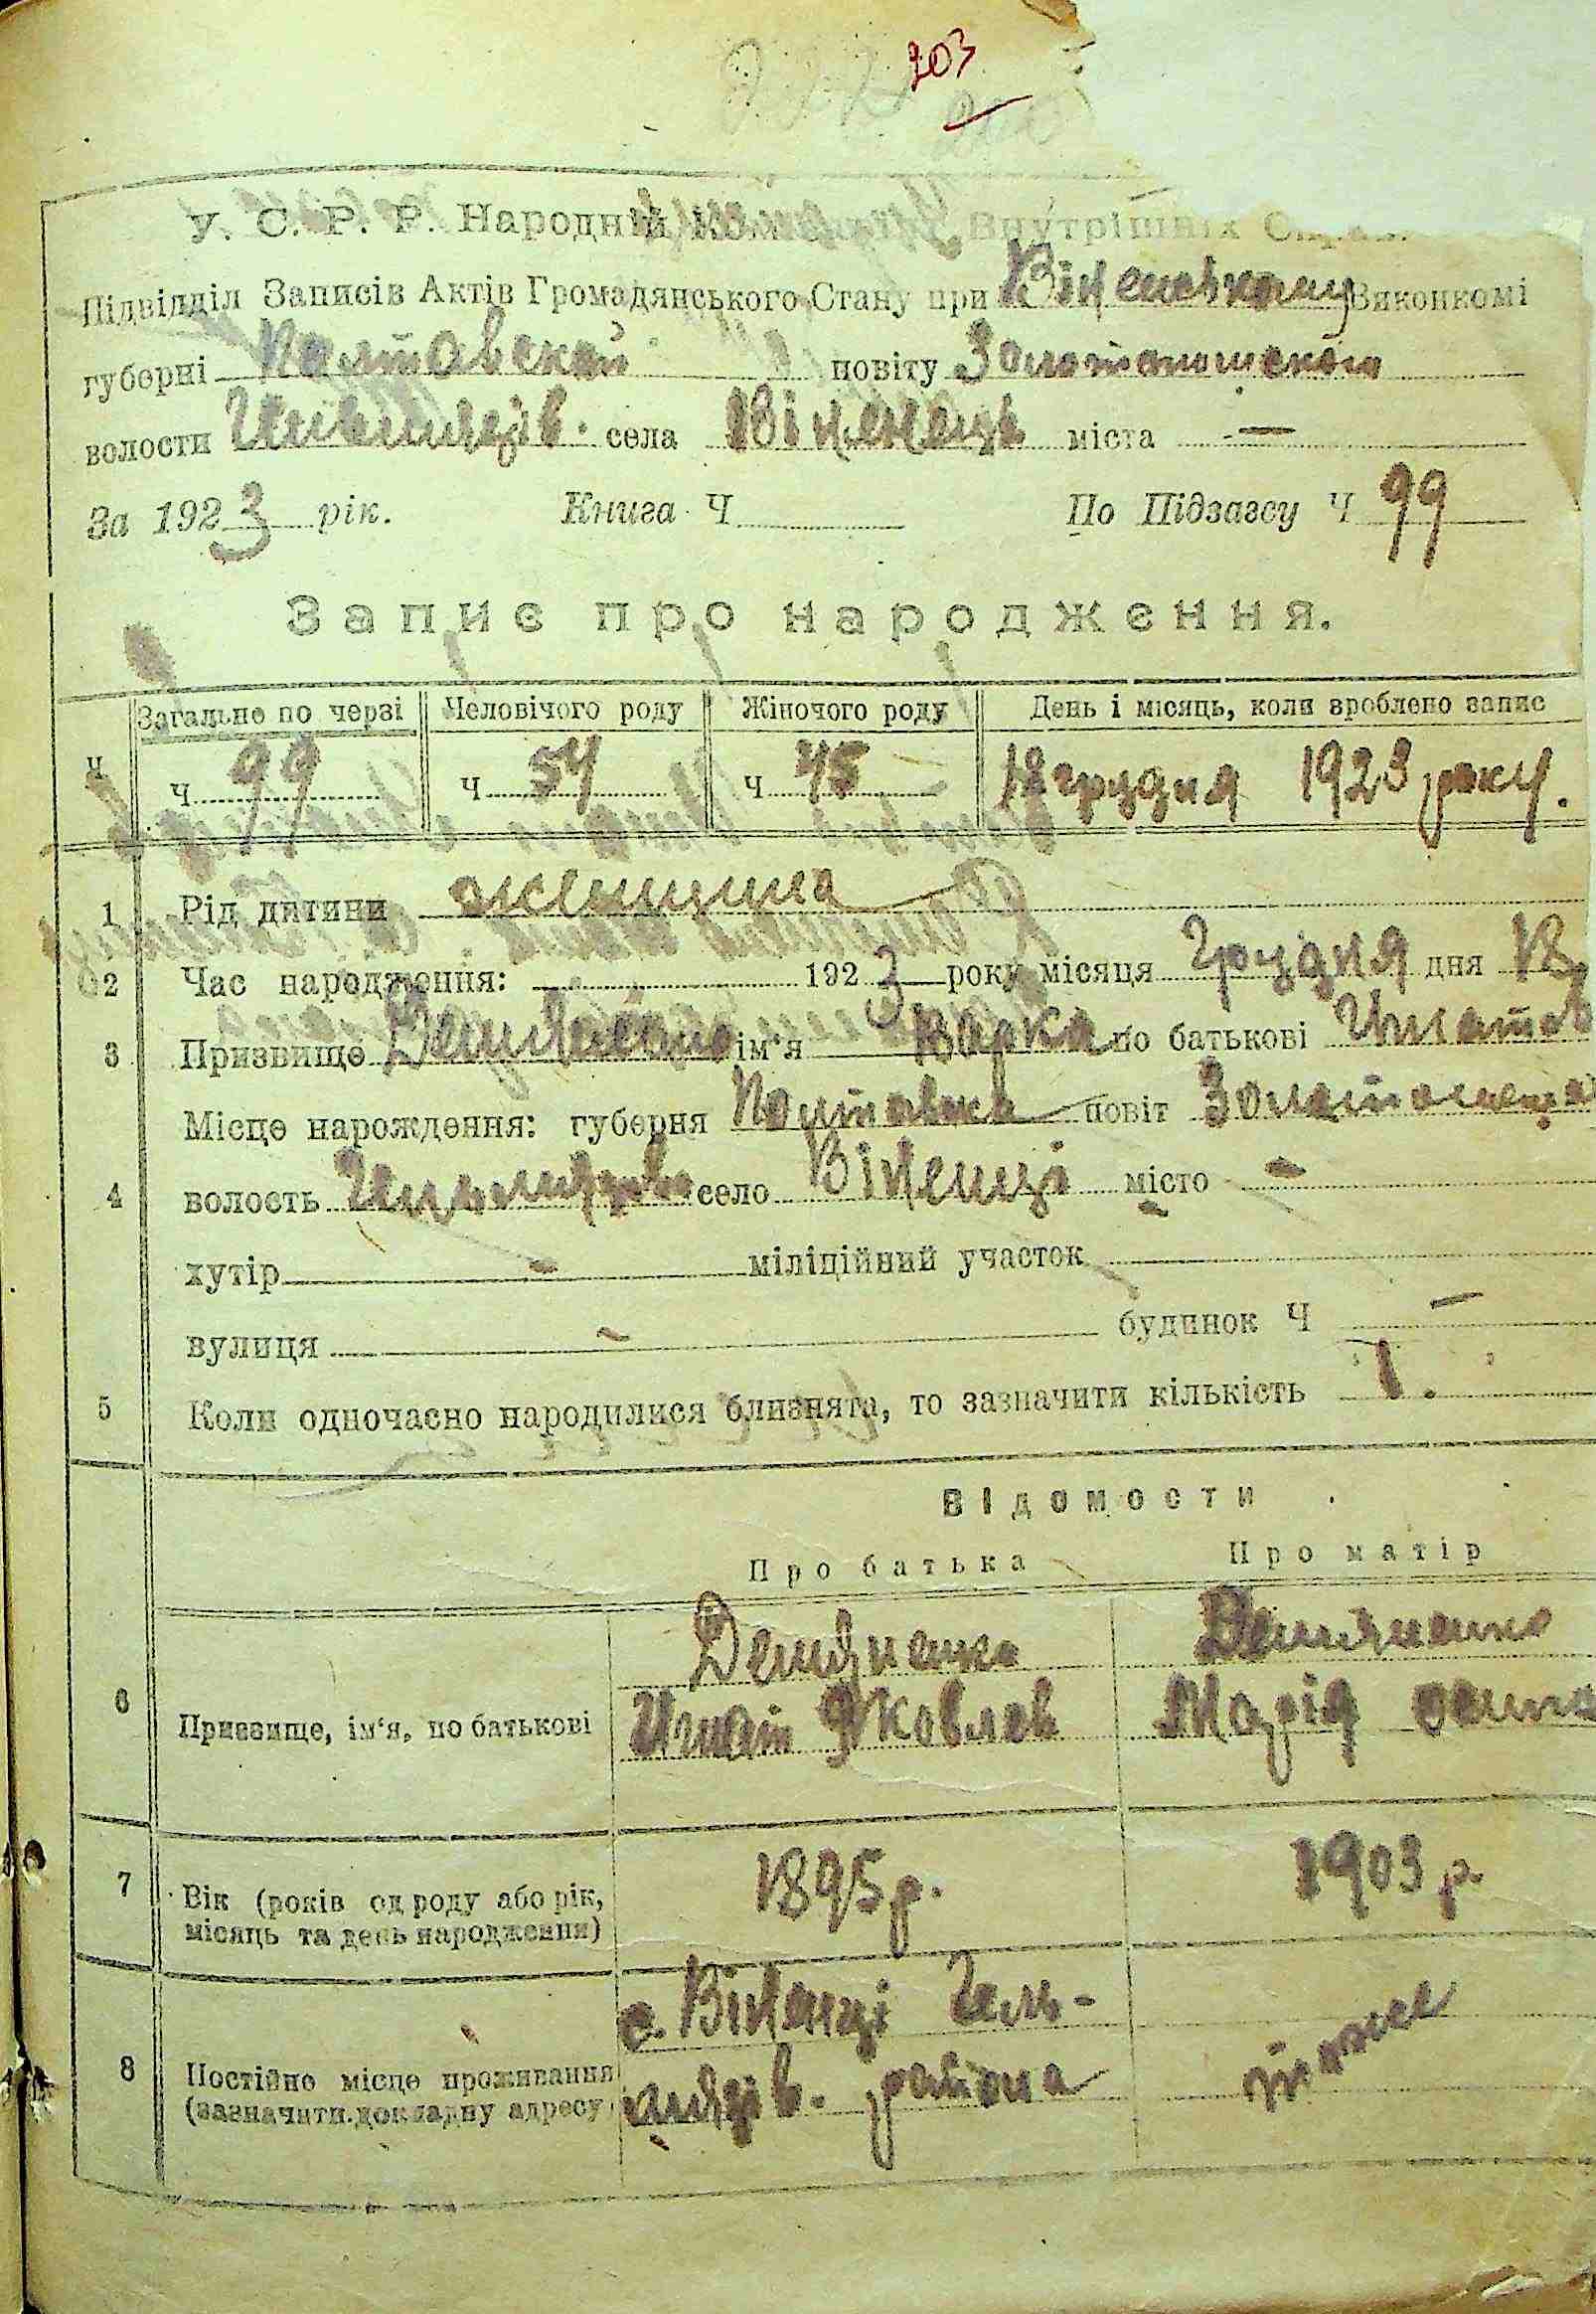 203
У. С. Р. Р. Народній Внутрішніх Справ.
Підвідділ Записів Актів Громадянського Стану при Виконкомі
губерні Полтавской повіту Золотоношеского
волости села Віненець міста —
За 1923 рік. Книга Ч По Підзагсу Ч 99
Запис про народження.
Загально по черзі Человічого роду Жіночого роду День і місяць, коли зроблено запис
Ч Ч 99 Ч 54 Ч 45 18 грудня 1923 року.
1 Рід дитини женщина
2 Час народження: 1923 року місяця Грудня дня 18
3 Призвище ім‘я Варка по батькові Игнатов
Місце народження: губерня Полтавска повіт
4 волость село Віненці місто -
хутір - міліційний участок
вулиця - будинок Ч —
5 Коли одночасно народилися близнята, то зазначити кількість 1.
Відомости
Про батька Про матір
Демяненко Демяненко
6 Призвище, ім‘я, по батькові Игнат Яковлев Марія
7 Вік (років од роду або рік, 1895 р. 1903 р.
місяць та день народження)
с. Віненці Гель-
8 Постійне місце проживання мязів. района тоже
(зазначити докладну адресу